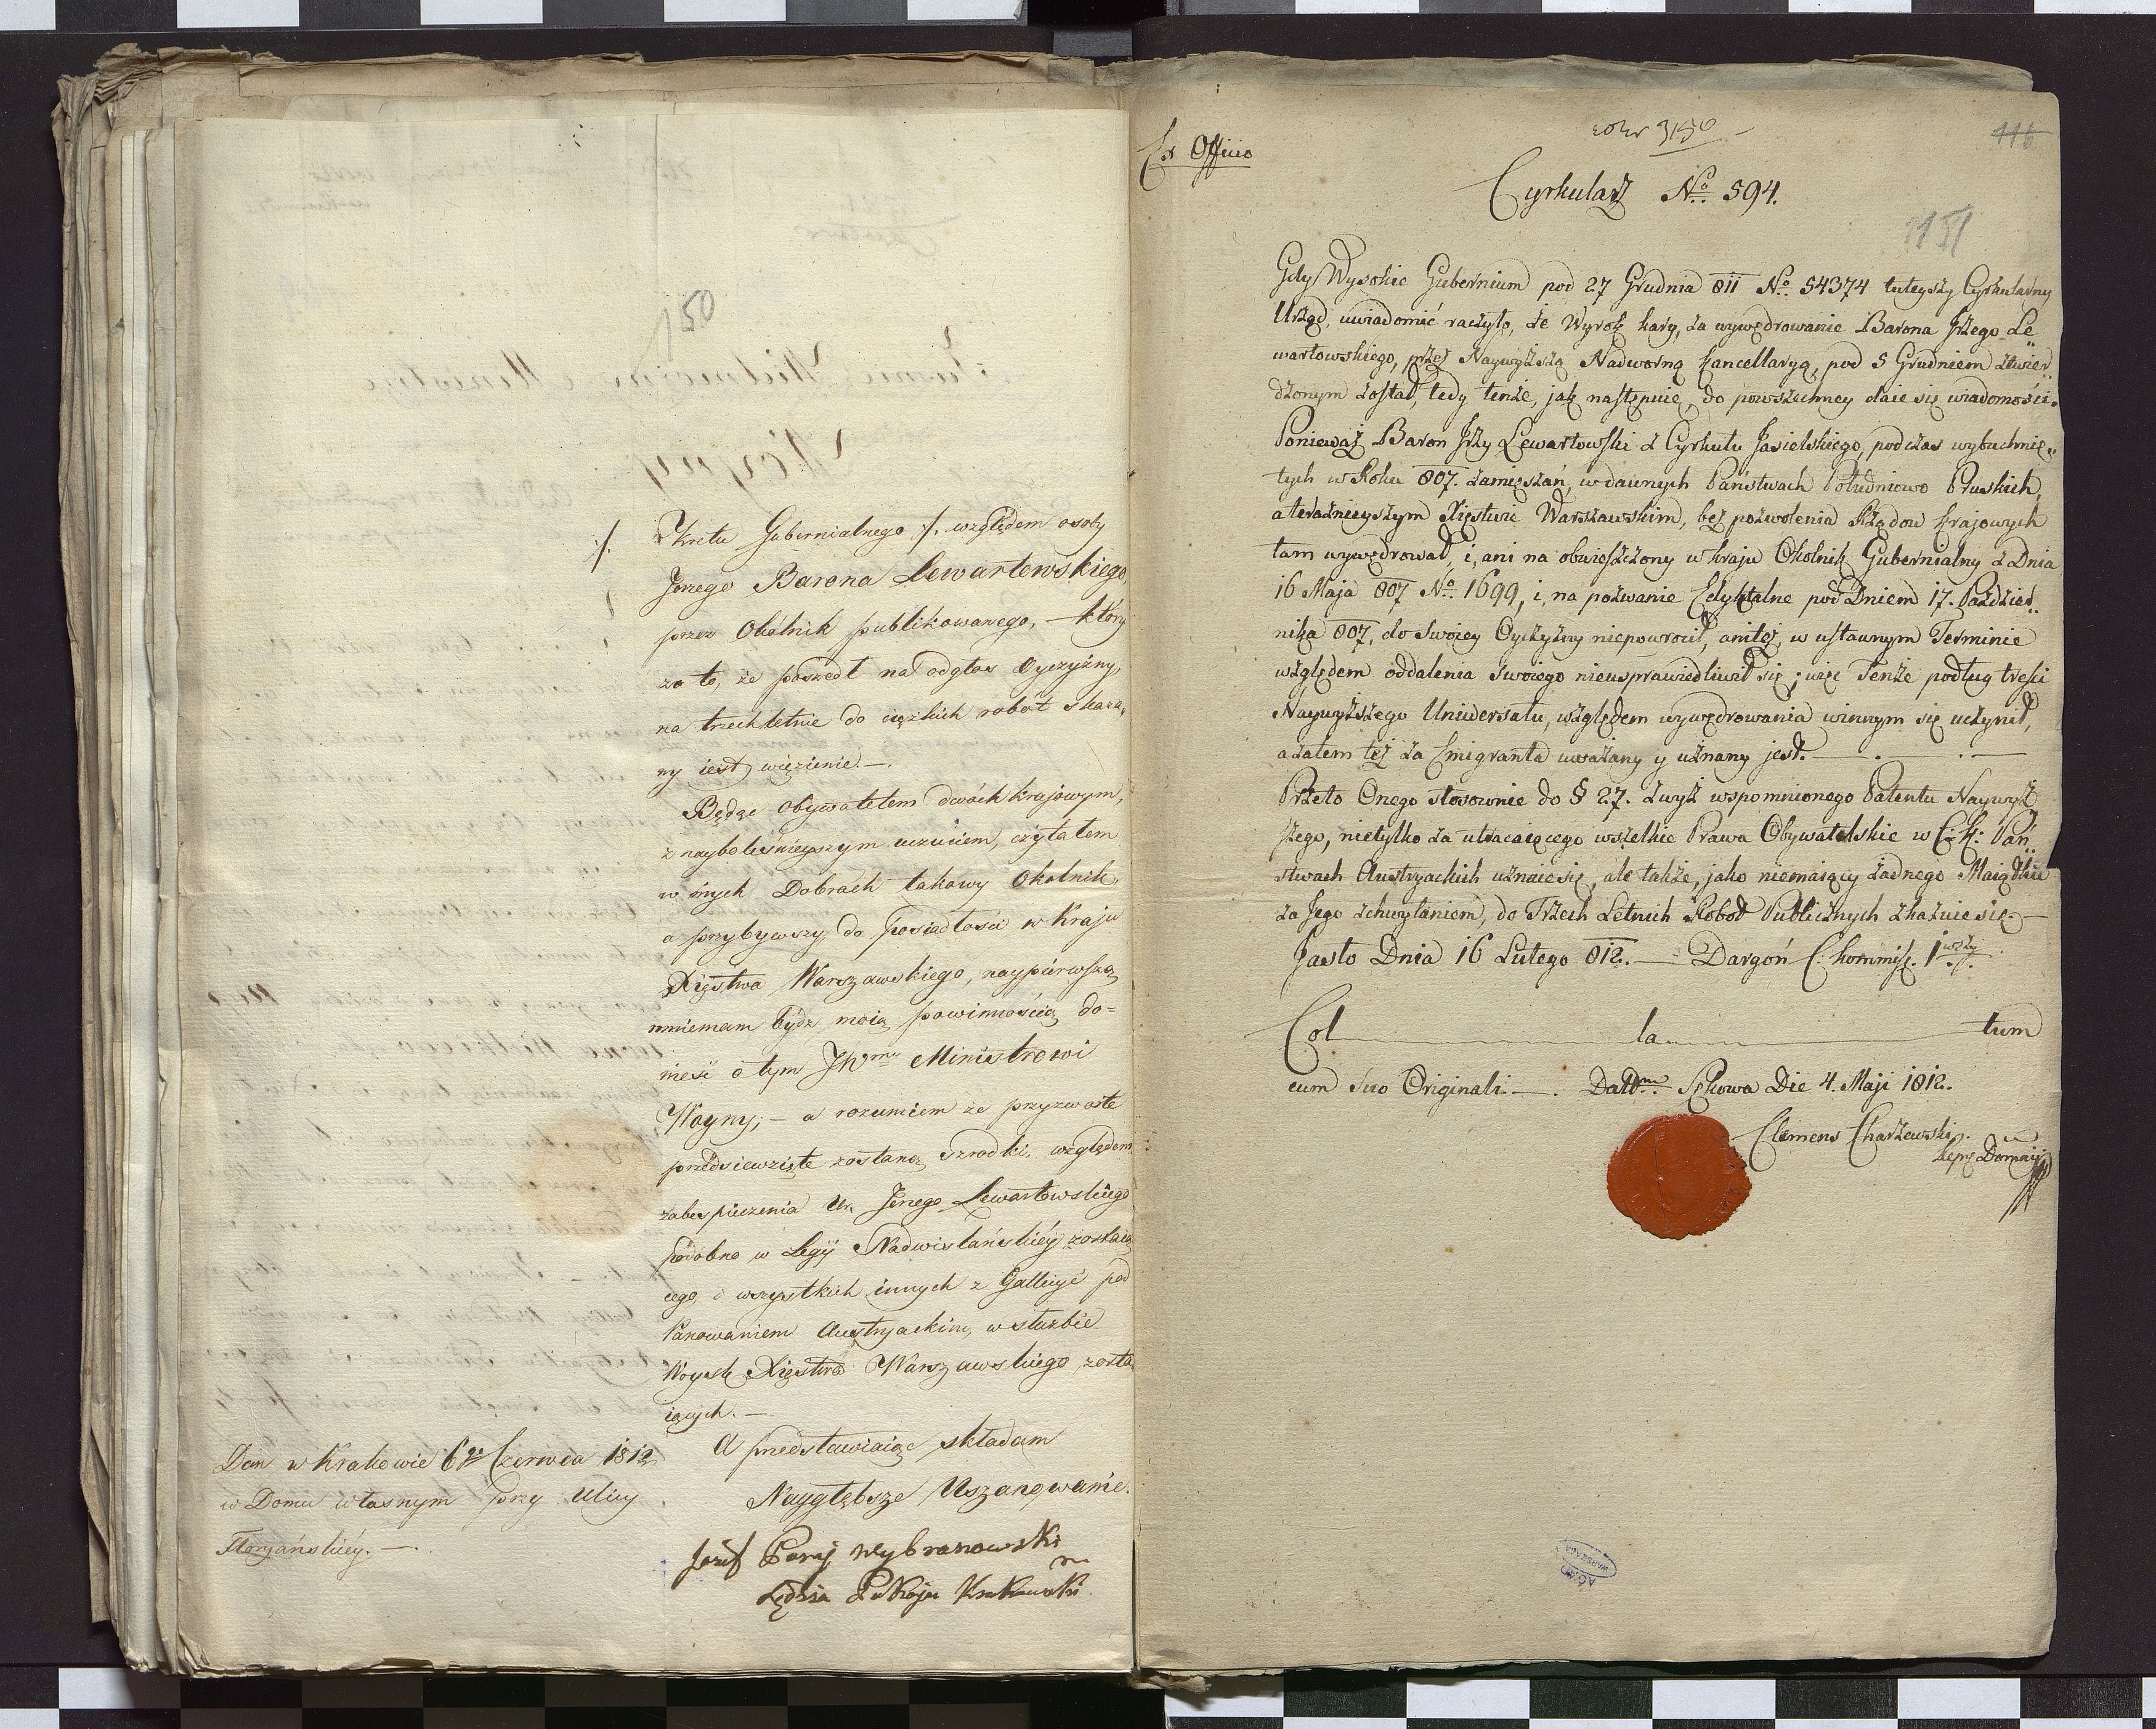 150
⁒ Dkretu Gubernialnego ⁒ względem osoby
Jerzego Barona Lewartowskiego,
przez Okólnik publikowanego, – który
za to, że poszedł na odgłos Oyczyzny,
na trzechletnie do ciężkich robót skaza„
ny iest więzienie. –.
Będąc Obywatelem dwóch krajowym,
z nayboleśnieyszym uczuciem, czytałem
w mych Dobrach takowy Okolnik,
a przybywszy do posiadłości w Kraju
Xięstwa Warszawskiego, naypierwszą
mniemam bydz moią powinnością do=
nieść o tym JWmu Ministrowi
Woyny; – a rozumiem że przyzwoite
przedsiewzięte zostaną szrodki, względem
zabespieczenia Ur. Jerzego Lewartowskiego
podobno w Legij Nadwislańskiéy zostaią
cego, i wszystkich innych z Gallicyi pod
Panowaniem Austryackim, w służbie
Woysk Xięstwa Warszawskiego zosta„
iących. –
A przedstawiaiąc składam
Naygłębsze Uszanowanie.
Józef Poraj Wybranowski
Sędzia Pokoju Krakowski
Dan w Krakowie 6go Czerwca 1812
w Domu własnym przy Ulicy
Floryańskiéy. –.
Ex Officio
3150
116
1151
Cyrkularz No. 594.
Gdy Wysokie Gubernium pod 27 Grudnia 811 No. 54374 tuteyszy Cyrkularny
Urząd, uwiadomić raczyło, że Wyrok kary, za wywędrowanie Barona Jrzego Le„
wartowskiego, przez Naywyższą Nadworną Kancellaryą, pod 5 Grudniem ztwier„
dzonym został, tedy tenże, jak następuie, do powszechney daie się wiadomości.
Ponieważ Baron Jrzy Lewartowski z Cyrkułu Jasielskiego, podczas wybuchnię„
tych w Roku 807. zamięszań, w dawnych Państwach Południowo Pruskich,
a teraznieyszym Xięstwie Warszawskim, bez pozwolenia Rządow krajowych
tam wywędrował, i, ani na obwieszczony w kraju Okolnik Gubernialny z Dnia
16 Maja 807 No. 1699, i, na pozwanie Edyktalne pod Dniem 17. Paździer„
nika 807, do Swoiey Oyczyzny niepowrocił, ani też, w ustawnym Terminie
względem oddalenia Swoiego nieusprawiedliwił się; więc Tenże podług treści
Naywyższego Uniwersału, względem wywędrowania winnym się uczynił,
a zatem też za Emigranta uważany y uznany jest. –.
Przeto Onego stosownie do § 27. zwyż wspomnionego Patentu Naywyż„
szego, nietylko za utracaiącego wszelkie Prawa Obywatelskie w C: K: Pań„
stwach Austryackich uznaie się, ale także, jako niemaiący żadnego Maiątku
za Jego zchwytaniem, do Trzech Letnich Robot Publicznych zkazuie się. –
Jasło Dnia 16 Lutego 812. – Dargoń C: kommiss. 1wszy
Col la tum
cum Suo Originali. –. Dattm. Sękowa Die 4. Maji 1812.
Clemens Charzewski
Repr. Dominij
AGAD
WARSZAWA